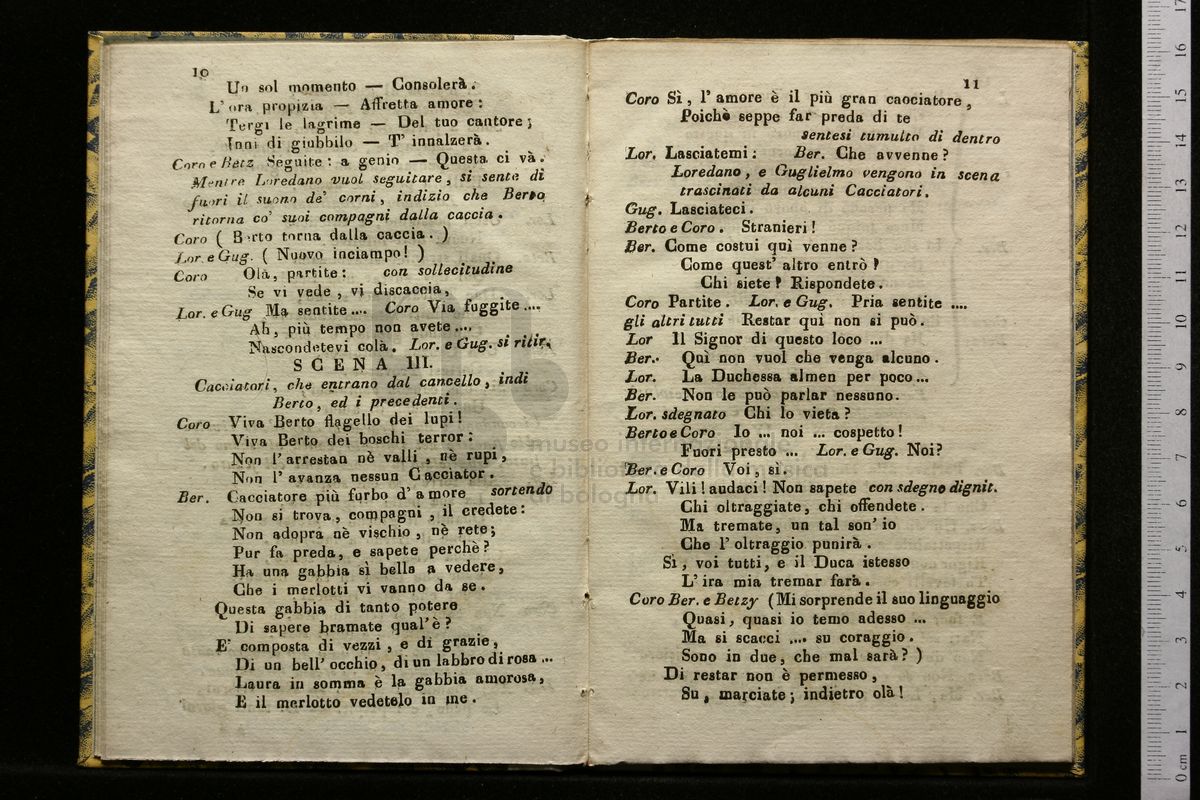 10
Un sol momento — Consolerà.
L' ora propizia — Affretta amore:
Tergi le lagrime — Del tuo cantore;
Inni di giubbilo — T' innalzerà.
Coro e Betz Seguite: a genio — Questa ci và.
Mentre Loredano vuol seguitare, si sente di
fuori il suono de' corni, indizio che Berto
ritorna co' suoi compagni dalla caccia.
Coro ( Berto torna dalla caccia. )
Lor. e Gug. ( Nuovo inciampo! )
Coro Olà, partite: con sollecitudine
Se vi vede, vi discaccia,
Lor. e Gug Ma sentite.... Coro Via fuggite....
Ah, più tempo non avete....
Nascondetevi colà. Lor. e Gug. si ritir.
SCENA III.
Cacciatori, che entrano dal cancello, indi
Berto, ed i precedenti.
Coro Viva Berto flagello dei lupi!
Viva Berto dei boschi terror:
Non l' arrestan nè valli, nè rupi,
Non l' avanza nessun Cacciator.
Ber. Cacciatore più furbo d' amore sortendo
Non si trova, compagni, il credete:
Non adopra nè vischio, nè rete;
Pur fa preda, e sapete perchè?
Ha una gabbia sì bella a vedere,
Che i merlotti vi vanno da se.
Questa gabbia di tanto potere
Di sapere bramate qual'è?
E' composta di vezzi, e di grazie,
Di un bell' occhio, di un labbro di rosa...
Laura in somma è la gabbia amorosa,
E il merlotto vedetelo in me.
11
Coro Sì, l' amore è il più gran caociatore,
Poichè seppe far preda di te
sentesi tumulto di dentro
Lor. Lasciatemi: Ber. Che avvenne?
Loredano, e Guglielmo vengono in scena
trascinati da alcuni Cacciatori.
Gug. Lasciateci.
Berto e Coro. Stranieri!
Ber. Come costui quì venne?
Come quest' altro entrò?
Chi siete? Rispondete.
Coro Partite. Lor. e Gug. Pria sentite....
gli altri tutti Restar quì non si può.
Lor Il Signor di questo loco...
Ber.. Quì non vuol che venga alcuno.
Lor. La Duchessa almen per poco...
Ber. Non le può parlar nessuno.
Lor. sdegnato Chi lo vieta?
Berto e Coro Io... noi... cospetto!
Fuori presto... Lor. e Gug. Noi?
Ber. e Coro Voi, sì.
Lor. Vili! audaci! Non sapete con sdegno dignit.
Chi oltraggiate, chi offendete.
Ma tremate, un tal son' io
Che l' oltraggio punirà.
Sì, voi tutti, e il Duca istesso
L' ira mia tremar farà.
Coro Ber. e Betzy (Mi sorprende il suo linguaggio
Quasi, quasi io temo adesso...
Ma si scacci.... su coraggio.
Sono in due, che mal sarà? )
Di restar non è permesso,
Su, marciate; indietro olà!
museo internazionale
e biblioteca della musica
di bologna
0 cm 1 2 3 4 5 6 7 8 9 10 11 12 13 14 15 16 17